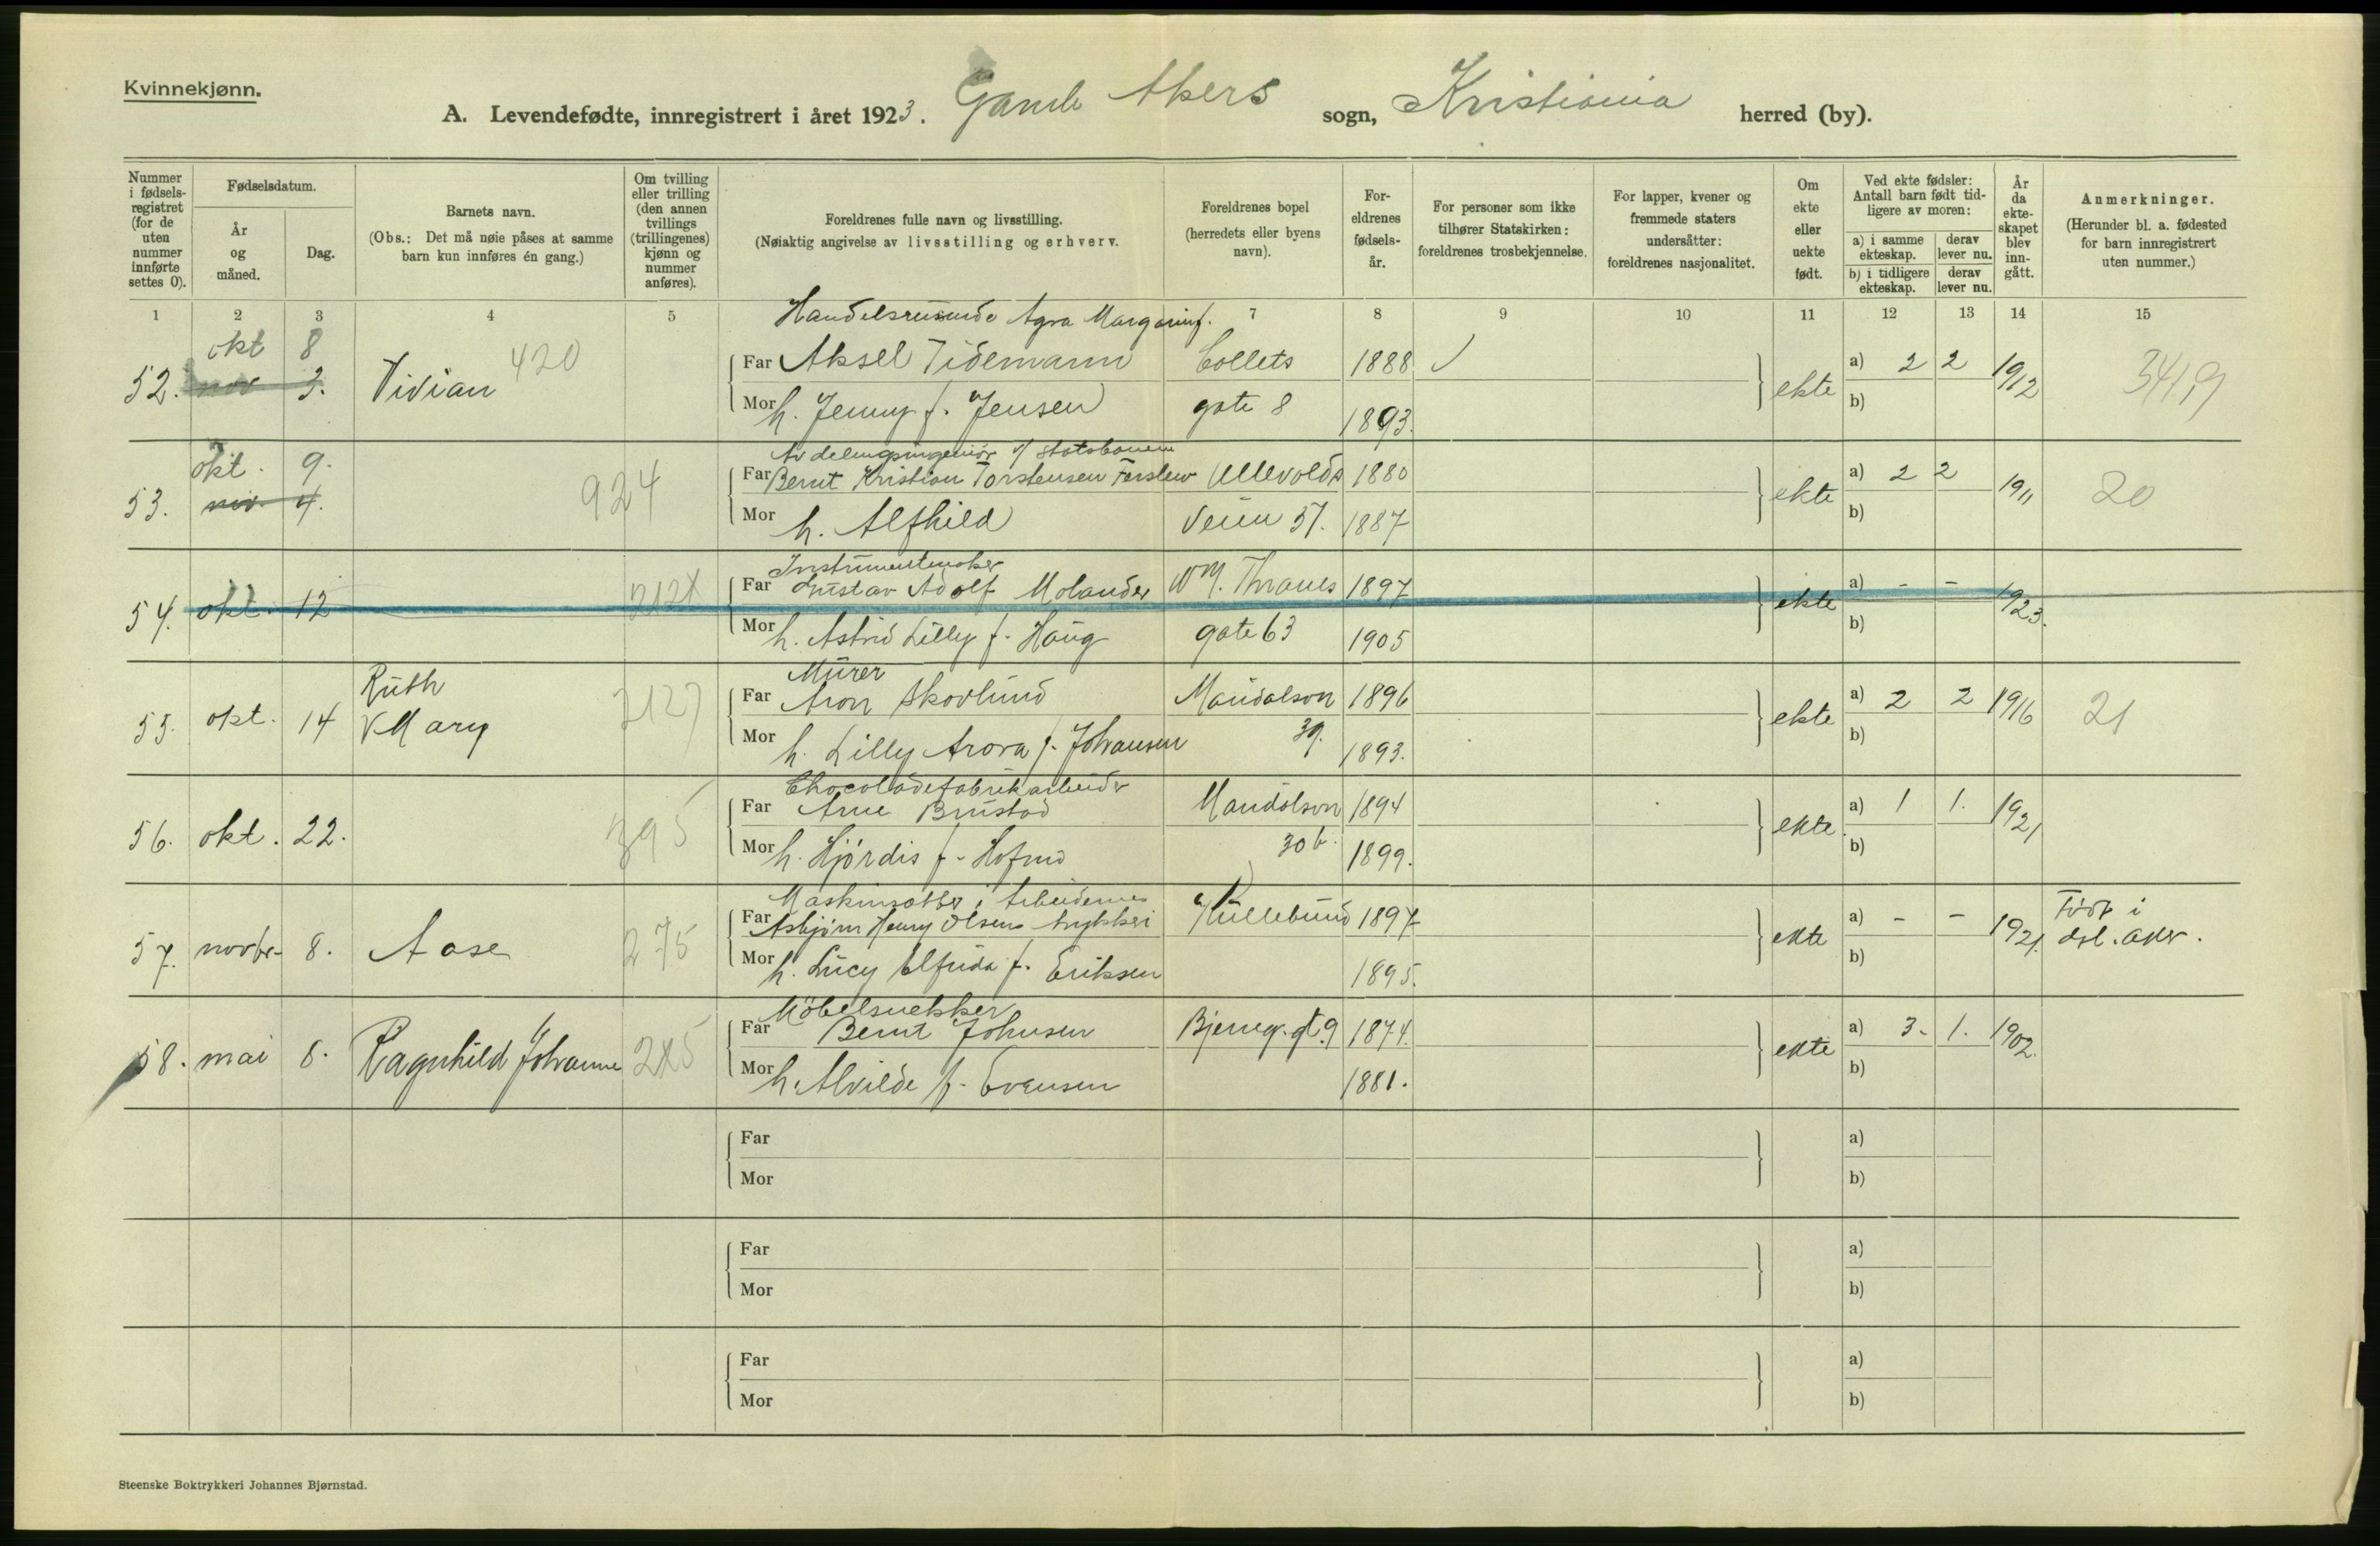 Kvinnekjønn.
A. Levendefødte, innregistrert i året 1923. Gamle Akers sogn, Kristiania herred (by).
Nummer i fødsels-registret (for de uten nummer innførte settes 0).
Fødselsdatum.
År og måned.
Dag.
Barnets navn.
(Obs.: Det må nøie påses at samme barn kun innføres én gang.)
Om tvilling eller trilling (den annen tvillings (trillingenes) kjønn og nummer anføres).
Foreldrenes fulle navn og livsstilling.
(Nøiaktig angivelse av livsstilling og erhverv.
Foreldrenes bopel (herredets eller byens navn).
For-eldrenes fødsels-år.
For personer som ikke tilhører Statskirken: foreldrenes trosbekjennelse.
For lapper, kvener og fremmede staters undersåtter: foreldrenes nasjonalitet.
Om ekte eller uekte født.
Ved ekte fødsler: Antall barn født tid-ligere av moren:
a) i samme ekteskap.
derav lever nu.
b) i tidligere ekteskap.
derav lever nu.
År da ekte-skapet blev inn-gått.
Anmerkninger.
(Herunder bl. a. fødested for barn innregistrert uten nummer.)
1 2 3 4 5 7 8 9 10 11 12 13 14 15
Handelsreisende Agra Margarinf.
okt 8
52. nov 3. Vivian 420 Far Aksel Tidemann Collets 1888 ekte a) 2 2 1912 3419
Mor h. Jenny f. Jensen gate 8 1893. b)
Avdelingsingeniør v/ Statsbanen
okt. 9.
53. nov. 4. 924 Far Bernt Kristian Torstensen Ullevolds 1880 ekte a) 2 2 1911 20
Mor h. Alfhild Veien 57. 1887 b)
Instrumentmaker
54. okt. 12 Far Gustav Adolf Molander W M. Thranes 1897 ekte a) - - 1923.
Mor h. Astrid Lilly f. Haug gate 63 1905 b)
Murer
55. okt. 14 Ruth Mary 2127 Far Aron Skovlund Maridalsvn 1896 ekte a) 2 2 1916 21
Mor h. Lilly Arora f. Johansen 39. 1893. b)
Chocoladefabrikarbeider
56. okt. 22. 395 Far Arne Brustad Maridalsvn 1894 ekte. a) 1 1. 1921
Mor h. Hjørdis f. 30 b. 1899. b)
Maskinsetter i Arbeidernes
57. novbr. 8. Aase 275 Far Asbjørn Henry Olsen trykkeri 1897 ekte a) - - 1921. Født i
Mor h. Lucy Elfrida f. Eriksen 1895. b) dsl. Aker.
Möbelsnekker
58. mai 6. Ragnhild Johanne Far Bernt Johnsen Bjerreg. gt. 9 1874. ekte a) 3. 1. 1902.
Mor h. Alvilde f. Evensen 1881. b)
Far a)
Mor b)
Far a)
Mor b)
Far a)
Mor b)
Steenske Boktrykkeri Johannes Bjørnstad.